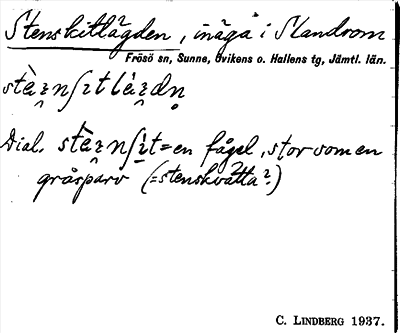 Stenskitlägden, inäga i Slandrom
Frösö sn, Sunne, Ovikens o. Hallens tg, Jämtl. län.
Dial. = en fågel, stor som en
gråsparv (= stenskvätta?)
C. LINDBERG 1937.